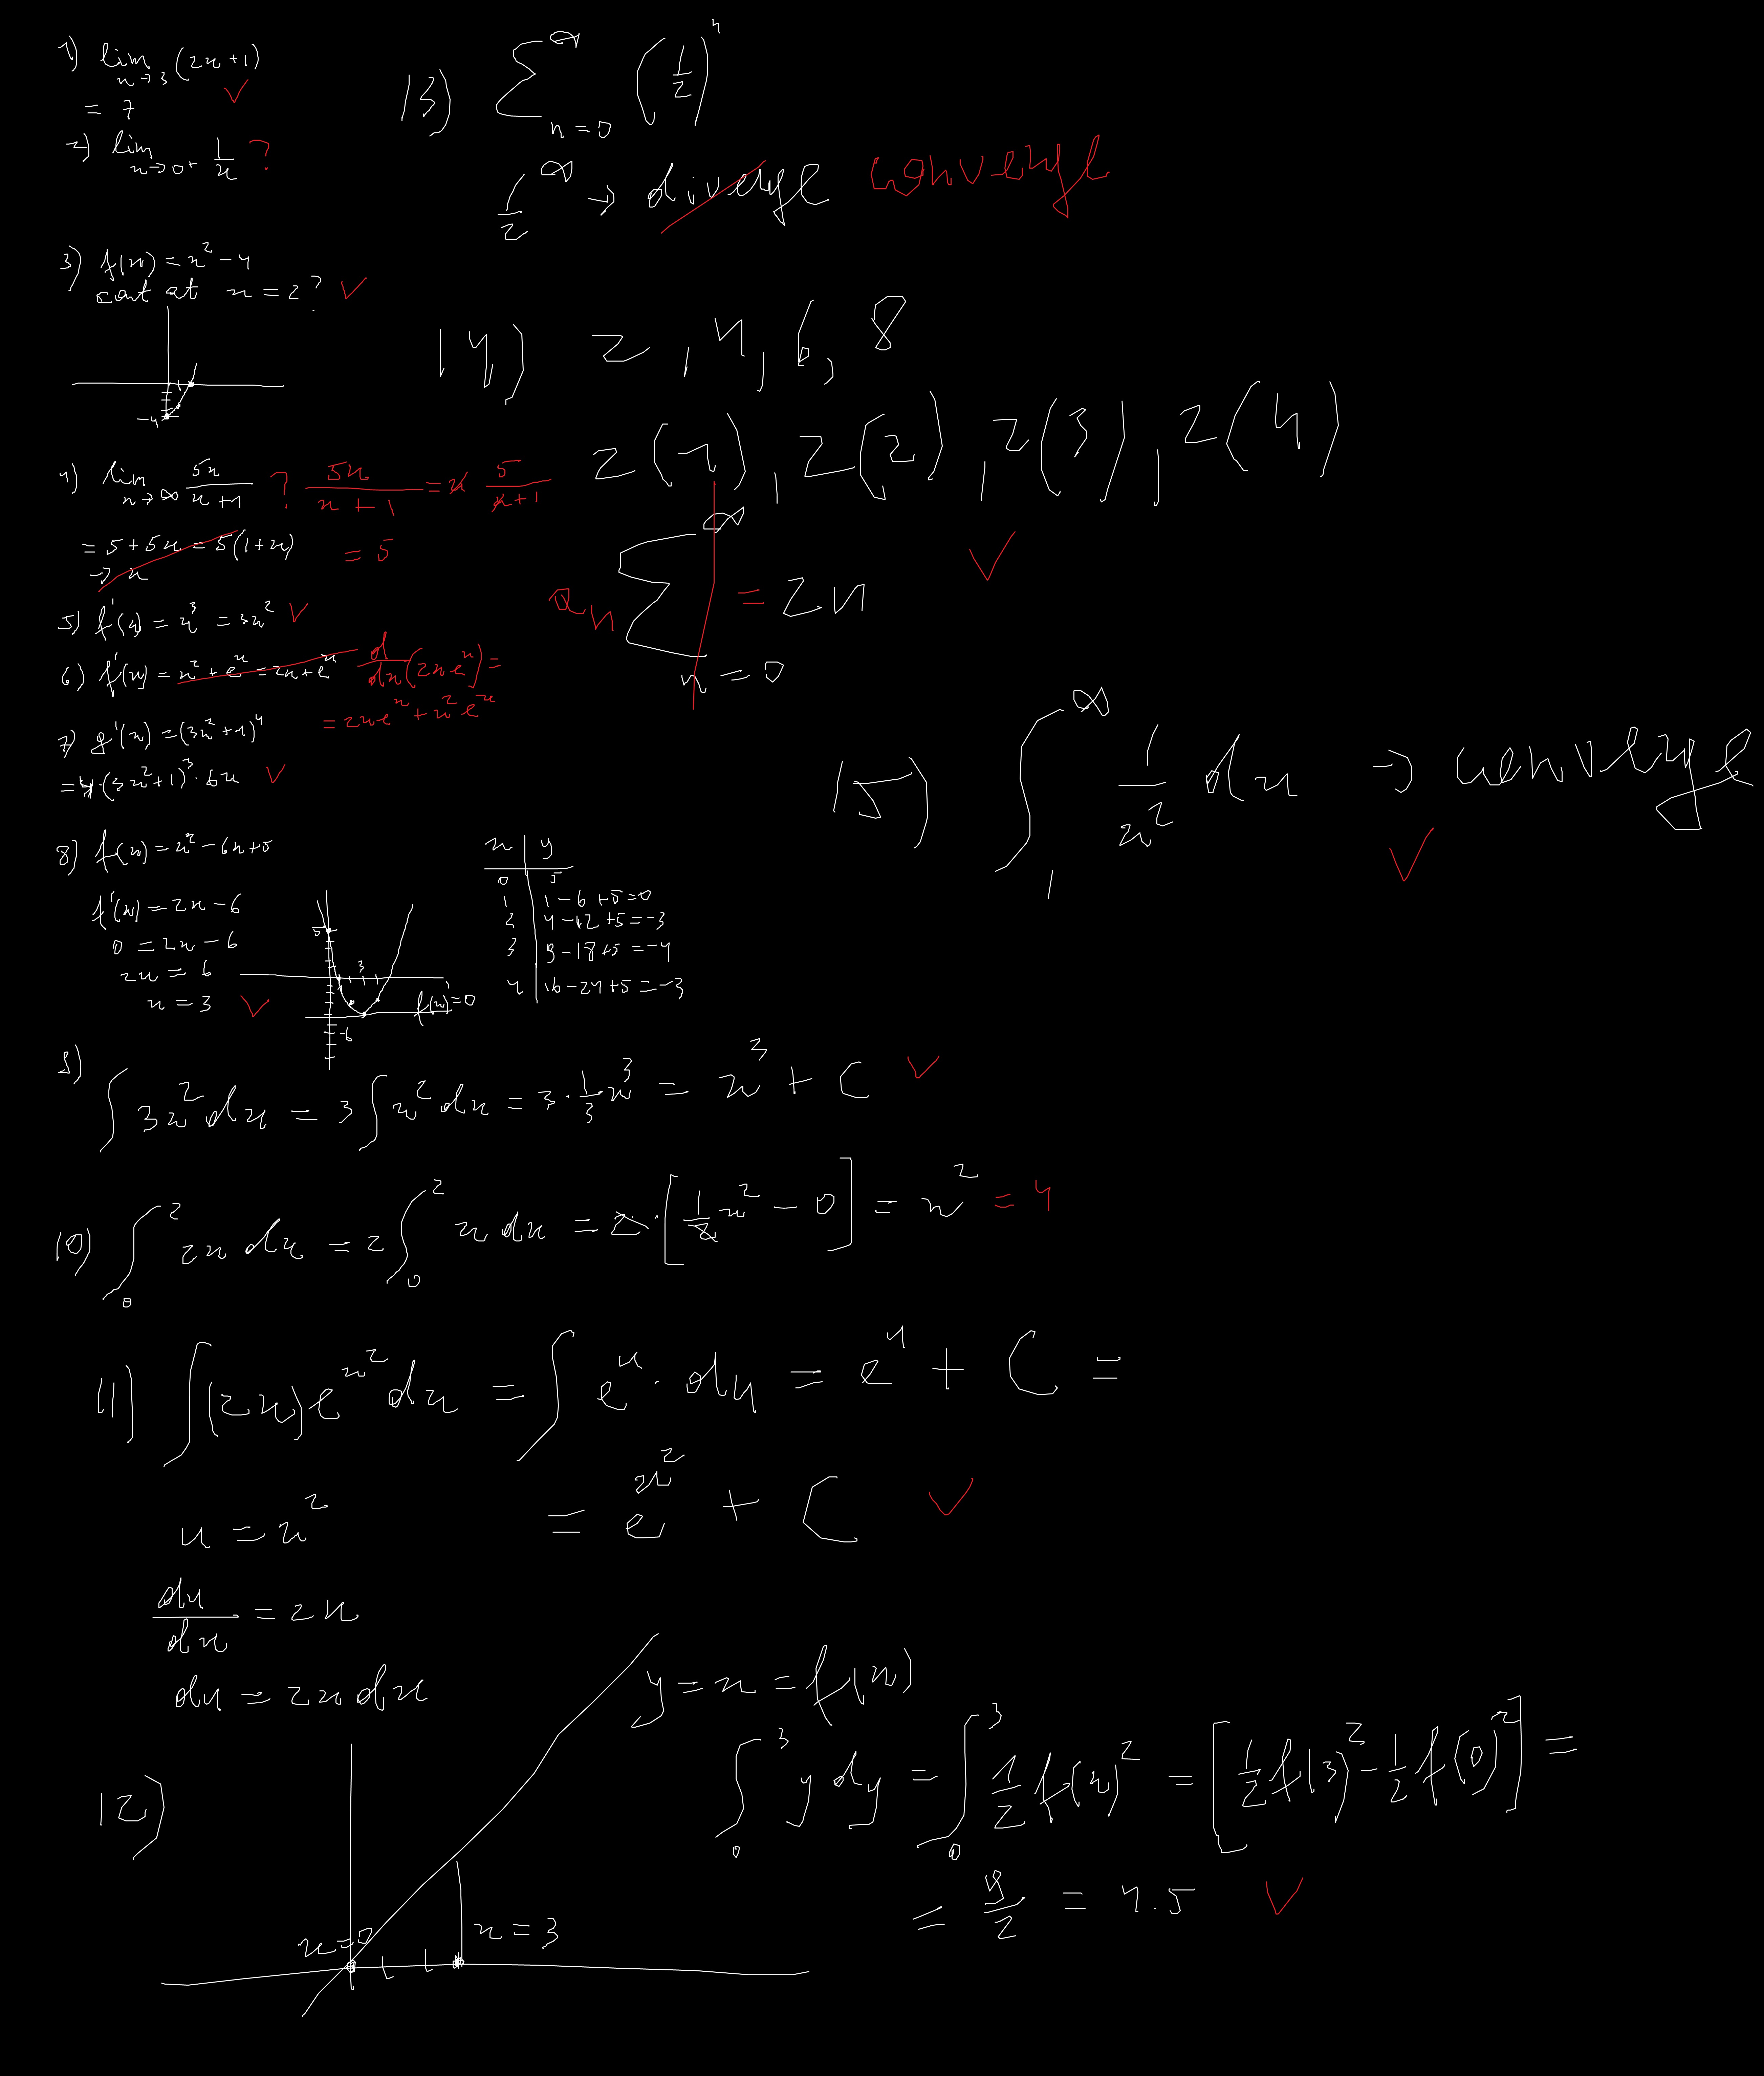 1) lim x→3 (2x+1) ✓
= 7
2) lim x→0+ 1/x ?
3) f(x) = x² - 4
cont at x = 2? ✓
-4
4) lim x→∞ 5x/(x+1) ? 5x/(x+1) = x 5/(x+1)
= 5+5x = 5(1+x) = 5
→ x
5) f'(x) = x³ = 3x² ✓
6) f'(x) = x² + e^x = 2x + e^x d/dx(2xe^x) =
= 2xe^x + x²e^x
7) g'(x) = (3x²+1)⁴
= 4·(3x²+1)³·6x ✓
8) f(x) = x² - 6x + 5
f'(x) = 2x - 6
0 = 2x - 6
2x = 6
x = 3 ✓
5
3
-6
f'(x) = 0
x | y
0 | 5
1 | 1-6+5=0
2 | 4-12+5=-3
3 | 9-18+5=-4
4 | 16-24+5=-3
9)
∫3x²dx = 3∫x²dx = 3·1/3x³ = x³ + C ✓
10) ∫₀² 2x dx = 2∫₀² x dx = 2·[1/2x² - 0] = x² = 4
11) ∫(2x)e^x² dx = ∫e^u · du = e^u + C =
= e^x² + C ✓
u = x²
du/dx = 2x
du = 2x dx
12)
x=0
x = 3
y = x = f(x)
∫₀³ y dy = ∫₀³ 1/2 f(x)² = [1/2 f(3)² - 1/2 f(0)²] =
= 9/2 = 4.5 ✓
13) ∑_{n=0}^{∞} (1/2)^n
1/2^∞ → diverge converge
14) 2, 4, 6, 8
2(1), 2(2), 2(3), 2(4)
a_n ∑_{n=0}^{∞} = 2n ✓
15) ∫₁^∞ 1/x² dx → converge
✓